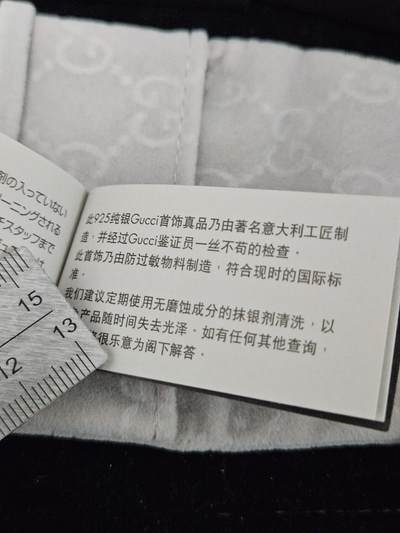 剤の入っていない
ーニングされる
チスタッフまで
此925纯银Gucci首饰真品乃由著名意大利工匠制
造，并经过Gucci鉴证员一丝不苟的检查．
此首饰乃由防过敏物料制造，符合现时的国际标
准．
我们建议定期使用无磨蚀成分的抹银剂清洗，以
产品随时间失去光泽．如有任何其他查询，
很乐意为阁下解答．
15
13
12